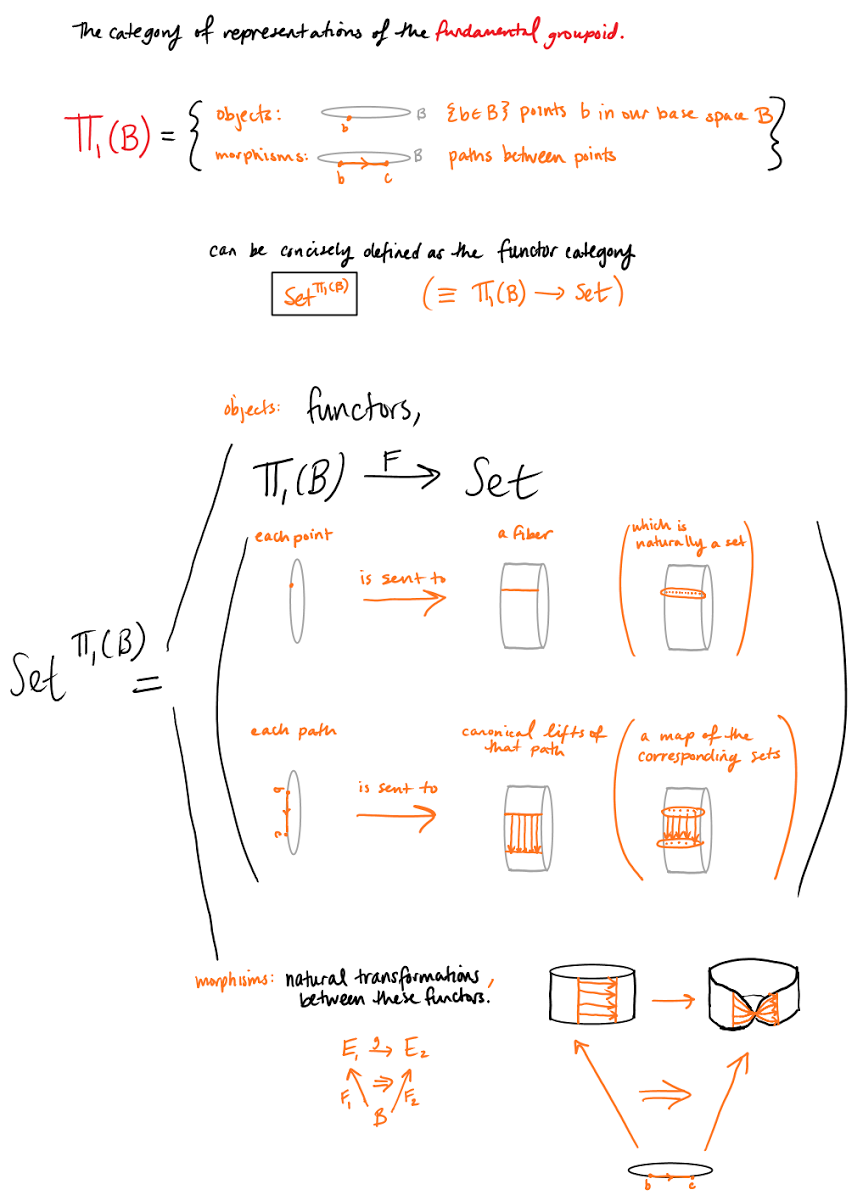 The category of representations of the fundamental groupoid.
Π₁(B) = {
objects: b B {b∈B} points b in our base space B
morphisms: b c B paths between points
}
can be concisely defined as the functor category
Set^Π₁(B) (≡ Π₁(B) → Set)
objects: functors,
Π₁(B) F→ Set
each point is sent to a fiber (which is
naturally a set)
Set^Π₁(B) =
each path is sent to canonical lifts of
that path
(a map of the
corresponding sets)
b
c
morphisms: natural transformations,
between these functors.
E₁ g→ E₂
F₁ ⇒ F₂
B
⇒
b c